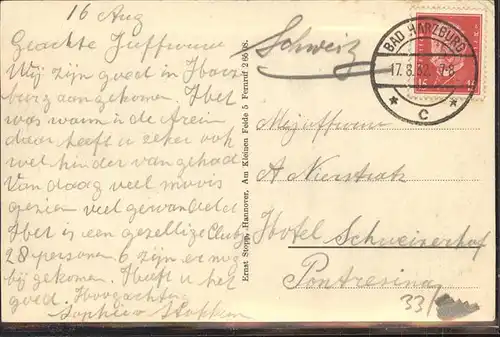 16 Aug
Geachte Juffrouw
Wij zijn goed in Harz
burg aangekomen. Het
was warm in de trein
daar heeft u zeker ook
wel hinder van gehad
Vandaag veel moois
gezien veel gewandeld
Het is een gezellige Clubje
28 personen 6 zijn er nog
bij gekomen. Heeft u het
goed. Hoogachtend
Sophie
Ernst Stopp, Hannover, Am Kleinen Felde 5 Fernruf 26508.
Schweiz
BAD HARZBURG
17.8.32. 7-8
* C *
15 15
Mejuffrouw
A Nierstrasz
Hotel Schweizerhof
Pontresina
33/